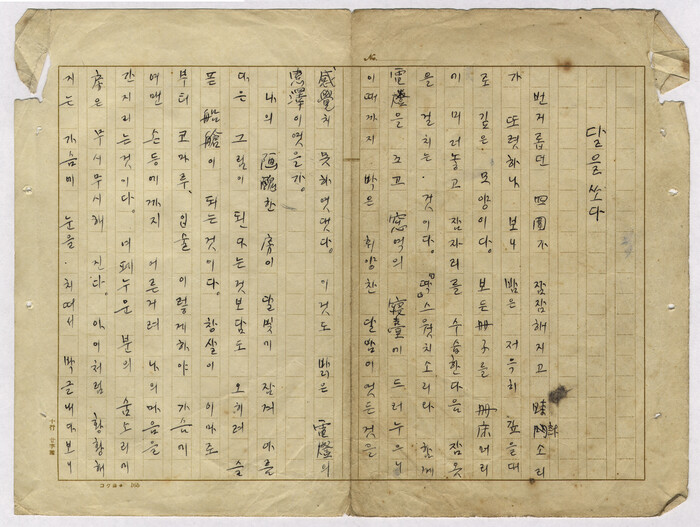 달을 쏘다
번거롭던 四圍가 잠잠해지고 時計소리
가 또렷하나 보니 밤은 저윽히 깊을대
로 깊은 모양이다. 보든 冊子를 冊床머리
에 미러놓고 잠자리를 수습한다음 잠옷
을 걸치는 것이다. 『딱』 스윗치소리와 함께
電燈을 끄고 窓역의 寢臺에 드러누으니
이때까지 박은 휘양찬 달밤이엿든것을
感覺치 못하엿댓다. 이것도 밝은 電燈의
惠澤이엿을가.
나의 陋醜한 房이 달빛에 잠겨 아름
다은 그림이 된다는것보담도 오히려 슬
픈 船艙이 되는것이다. 창살이 이마로
부터 코마루, 입술 이렇게하야 가슴에
여맨 손등에까지 어른거려 나의마음을
간지리는것이다. 여페누운 분의 숨소리에
房은 무시무시해 진다. 아이처럼 황황해
지는 가슴에 눈을 치떠서 박글내다보니
No.
コクヨ 165